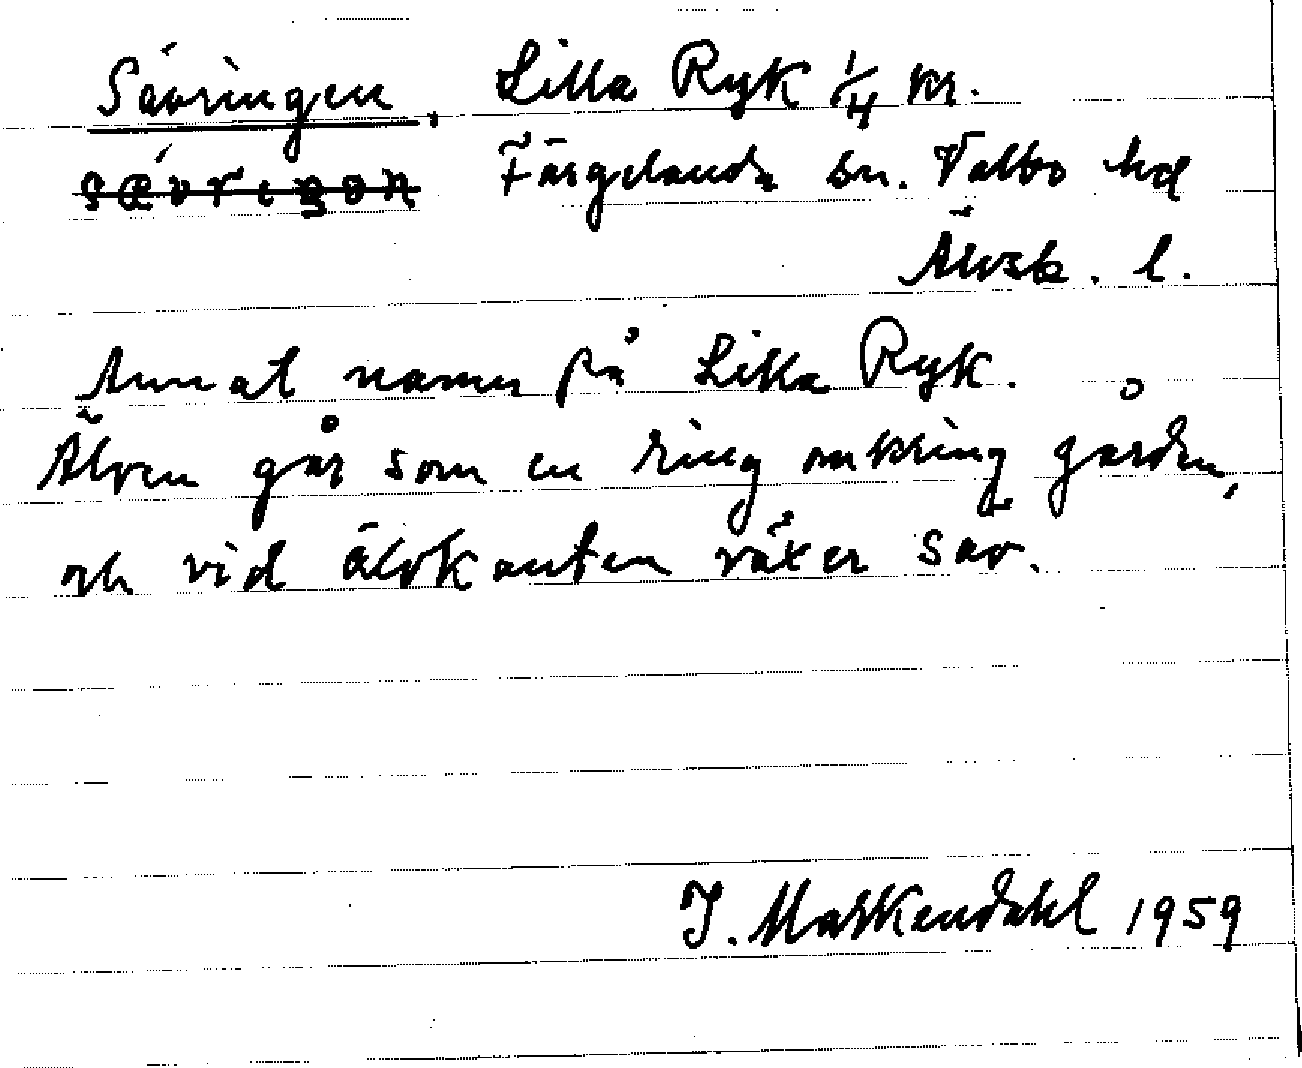 Sävringen. Lilla Ryk 1/4 kr.
sævriŋən Färgelanda sn. Valbo hd
Älvsb. l.
Annat namn på Lilla Ryk.
Älven går som en ring omkring gården,
och vid älvkanten växer säv.
J. Markendahl 1959